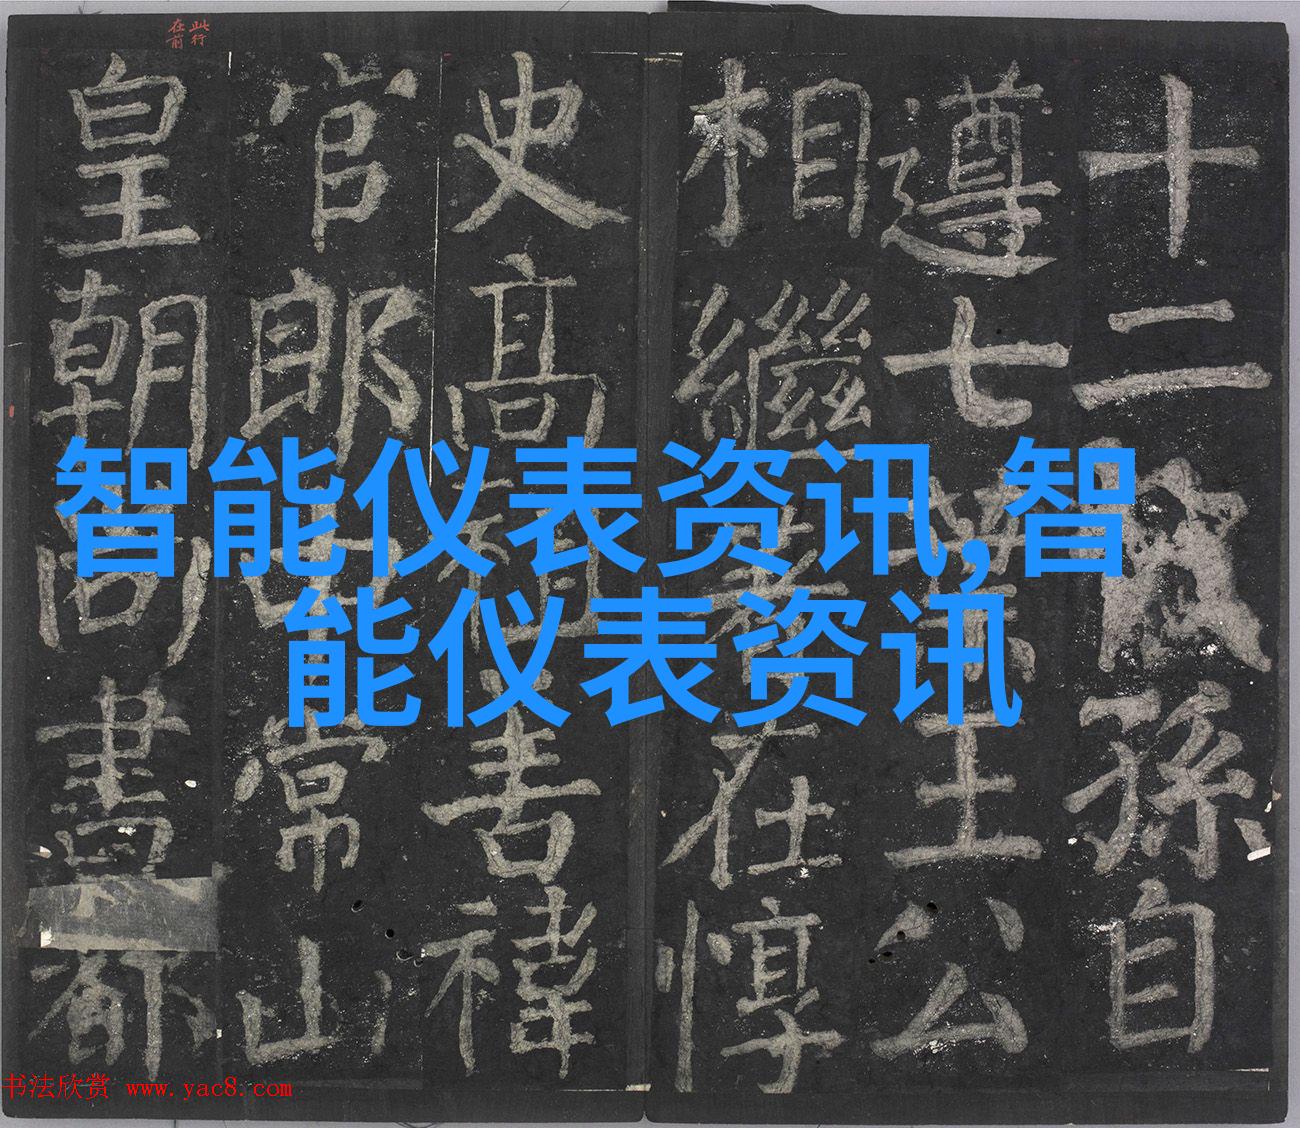 此行
在前
十二孫自
遵七葉王公
相繼在惇
史高祖禕
官郎中常山
皇朝尚書都
智能仪表资讯,智
能仪表资讯
书法欣赏 www.yac8.com